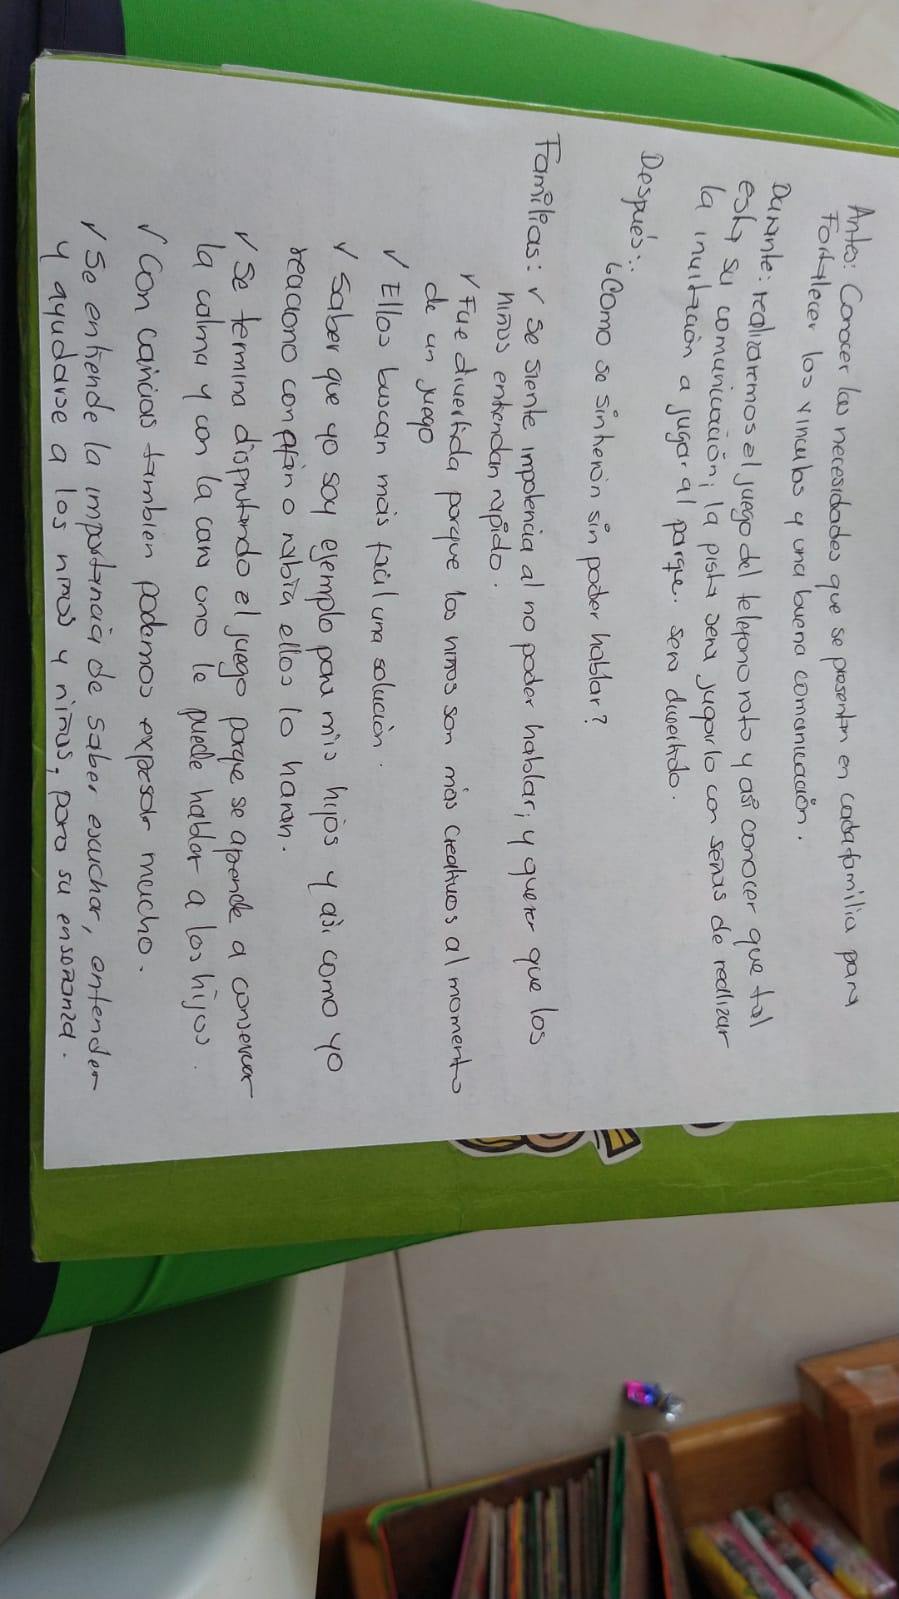 Antes: Conocer las necesidades que se presentan en cada familia para
Fortalecer los vinculos y una buena comunicación.
Durante: realizaremos el juego del telefono roto y así conocer que tal
esta su comunicación; la pista sera jugarlo con señas de realizar
la invitación a jugar al parque. sera divertido.
Después:
¿Como se sintierón sin poder hablar?
Familias: ✓ se siente impotencia al no poder hablar; y querer que los
niños entiendan rapido.
✓ Fue divertida porque los niños son más creativos al momento
de un juego
✓ Ellos buscan más facil una solución.
✓ Saber que yo soy ejemplo para mis hijos y así como yo
reaciono con afán o rabia ellos lo haran.
✓ Se termina disfrutando el juego porque se aprende a conservar
la calma y con la cara uno le puede hablar a los hijos.
✓ Con caricias tambien podemos expresar mucho.
✓ Se entiende la importancia de saber escuchar, entender
y ayudarse a los niños y niñas, para su enseñanza.